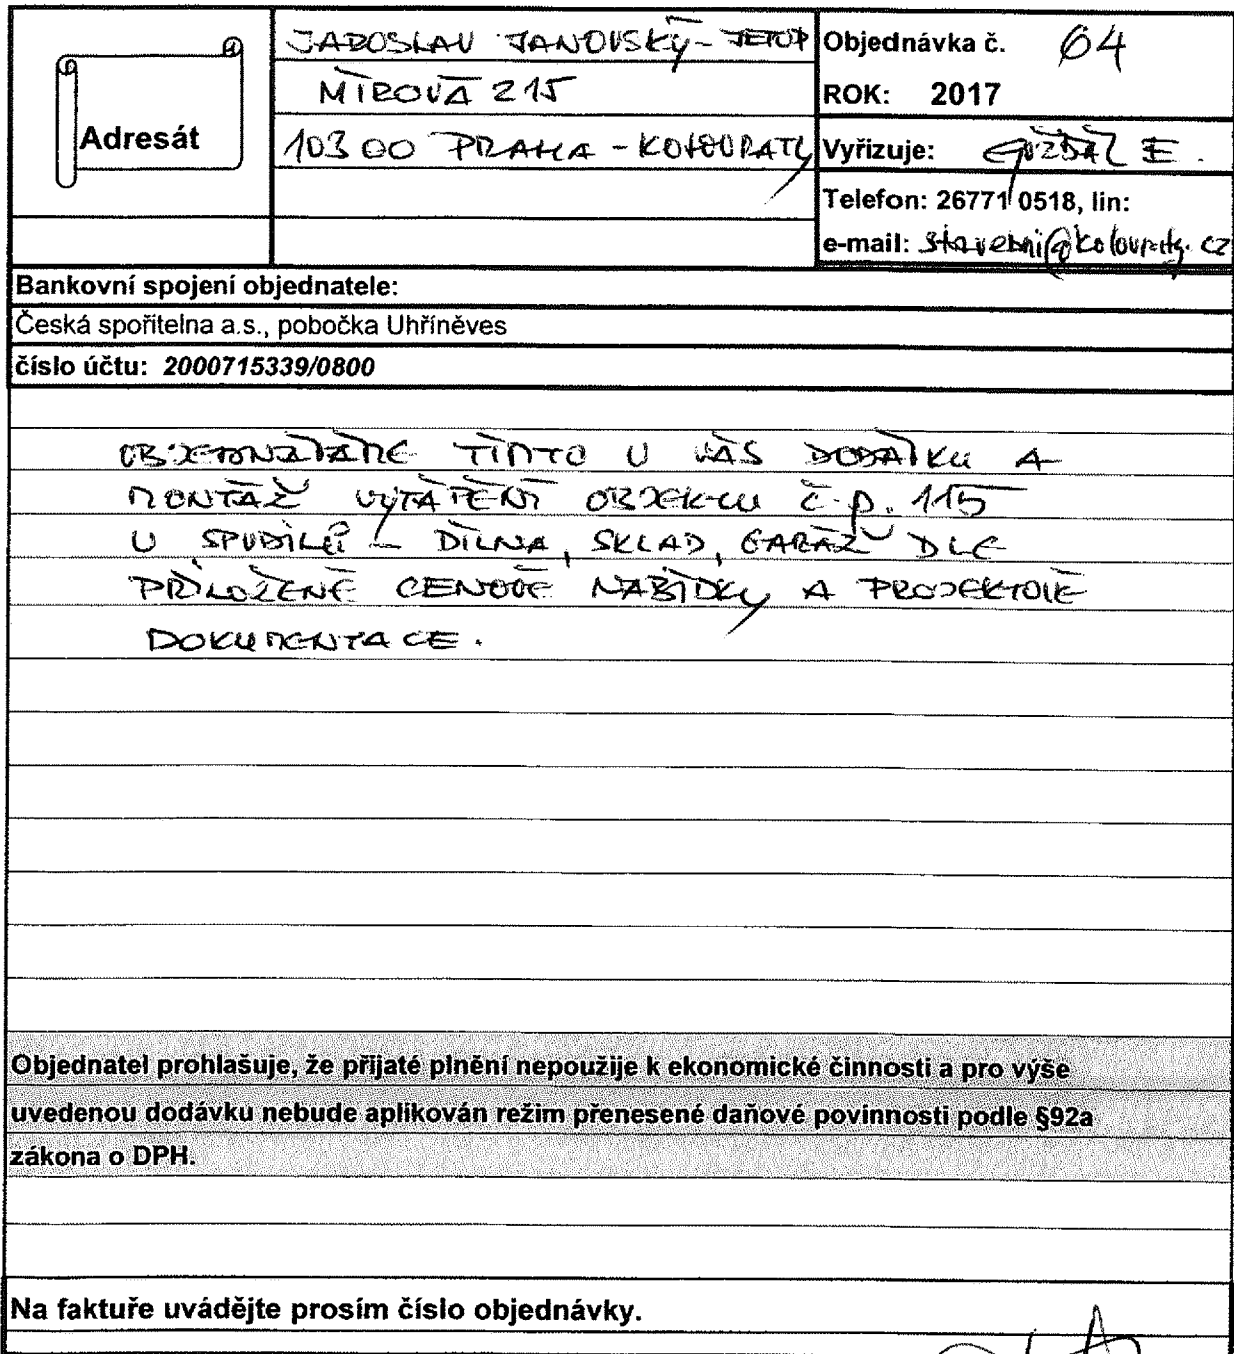 Adresát
JAROSLAV JANOVSKÝ - JETOP
MÍROVÁ 215
103 00 PRAHA - KOLOVRATY
Objednávka č. 64
ROK: 2017
Vyřizuje: E.
Telefon: 26771 0518, lin:
e-mail: stavebni@kolovraty.cz
Bankovní spojení objednatele:
Česká spořitelna a.s., pobočka Uhříněves
číslo účtu: 2000715339/0800
OBJEDNÁVÁME TÍMTO U VÁS DODÁVKU A
MONTÁŽ VYTÁPĚNÍ OBJEKTU Č.P. 115
U SPUDILŮ - DÍLNA, SKLAD, GARÁŽ DLE
PŘILOŽENÉ CENOVÉ NABÍDKY A PROJEKTOVÉ
DOKUMENTACE.
Objednatel prohlašuje, že přijaté plnění nepoužije k ekonomické činnosti a pro výše
uvedenou dodávku nebude aplikován režim přenesené daňové povinnosti podle §92a
zákona o DPH.
Na faktuře uvádějte prosím číslo objednávky.